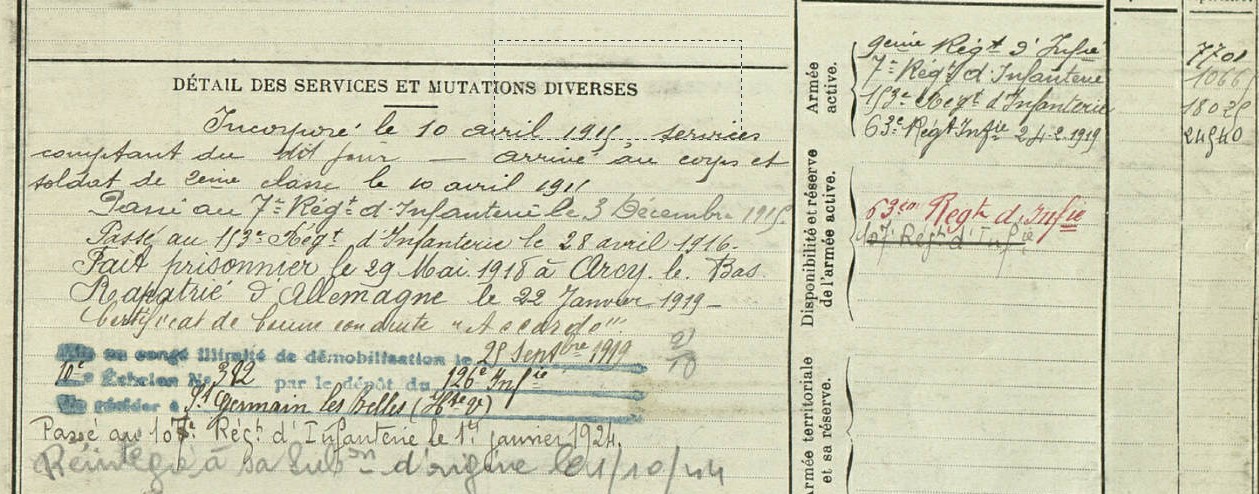 DÉTAIL DES SERVICES ET MUTATIONS DIVERSES
Incorporé le 10 avril 1915, services
comptant du dit jour — arrivé au corps et
soldat de 2eme classe le 10 avril 191
Passé au 7e Régt d'Infanterie le 3 Décembre 1915
Passé au 153e Régt d'Infanterie le 28 avril 1916.
Fait prisonnier le 29 Mai 1918 à Arcy. le. Bas.
Rapatrié d'Allemagne le 22 Janvier 1919 –
Certificat de bonne conduite "Accordé".
Mis en congé illimité de démobilisation le 25 Septbre 1919
10e Échelon No 392 par le dépôt du 126e Infie
Se retire à St Germain les Belles (Hte V)
Passé au 107e Régt d'Infanterie le 1er janvier 1924.
Réintégré à sa Subon d'origine le 1/10/44
Armée
active.
9eme Régt d'Infie
7e Régt d'Infanterie
153e Regt d'Infanterie
63e Régt Infie 24-2-1919
Disponibilité et réserve
de l'armée active.
63em Regt d'Infie
107e Régt d'Infie
Armée territoriale
et sa réserve.